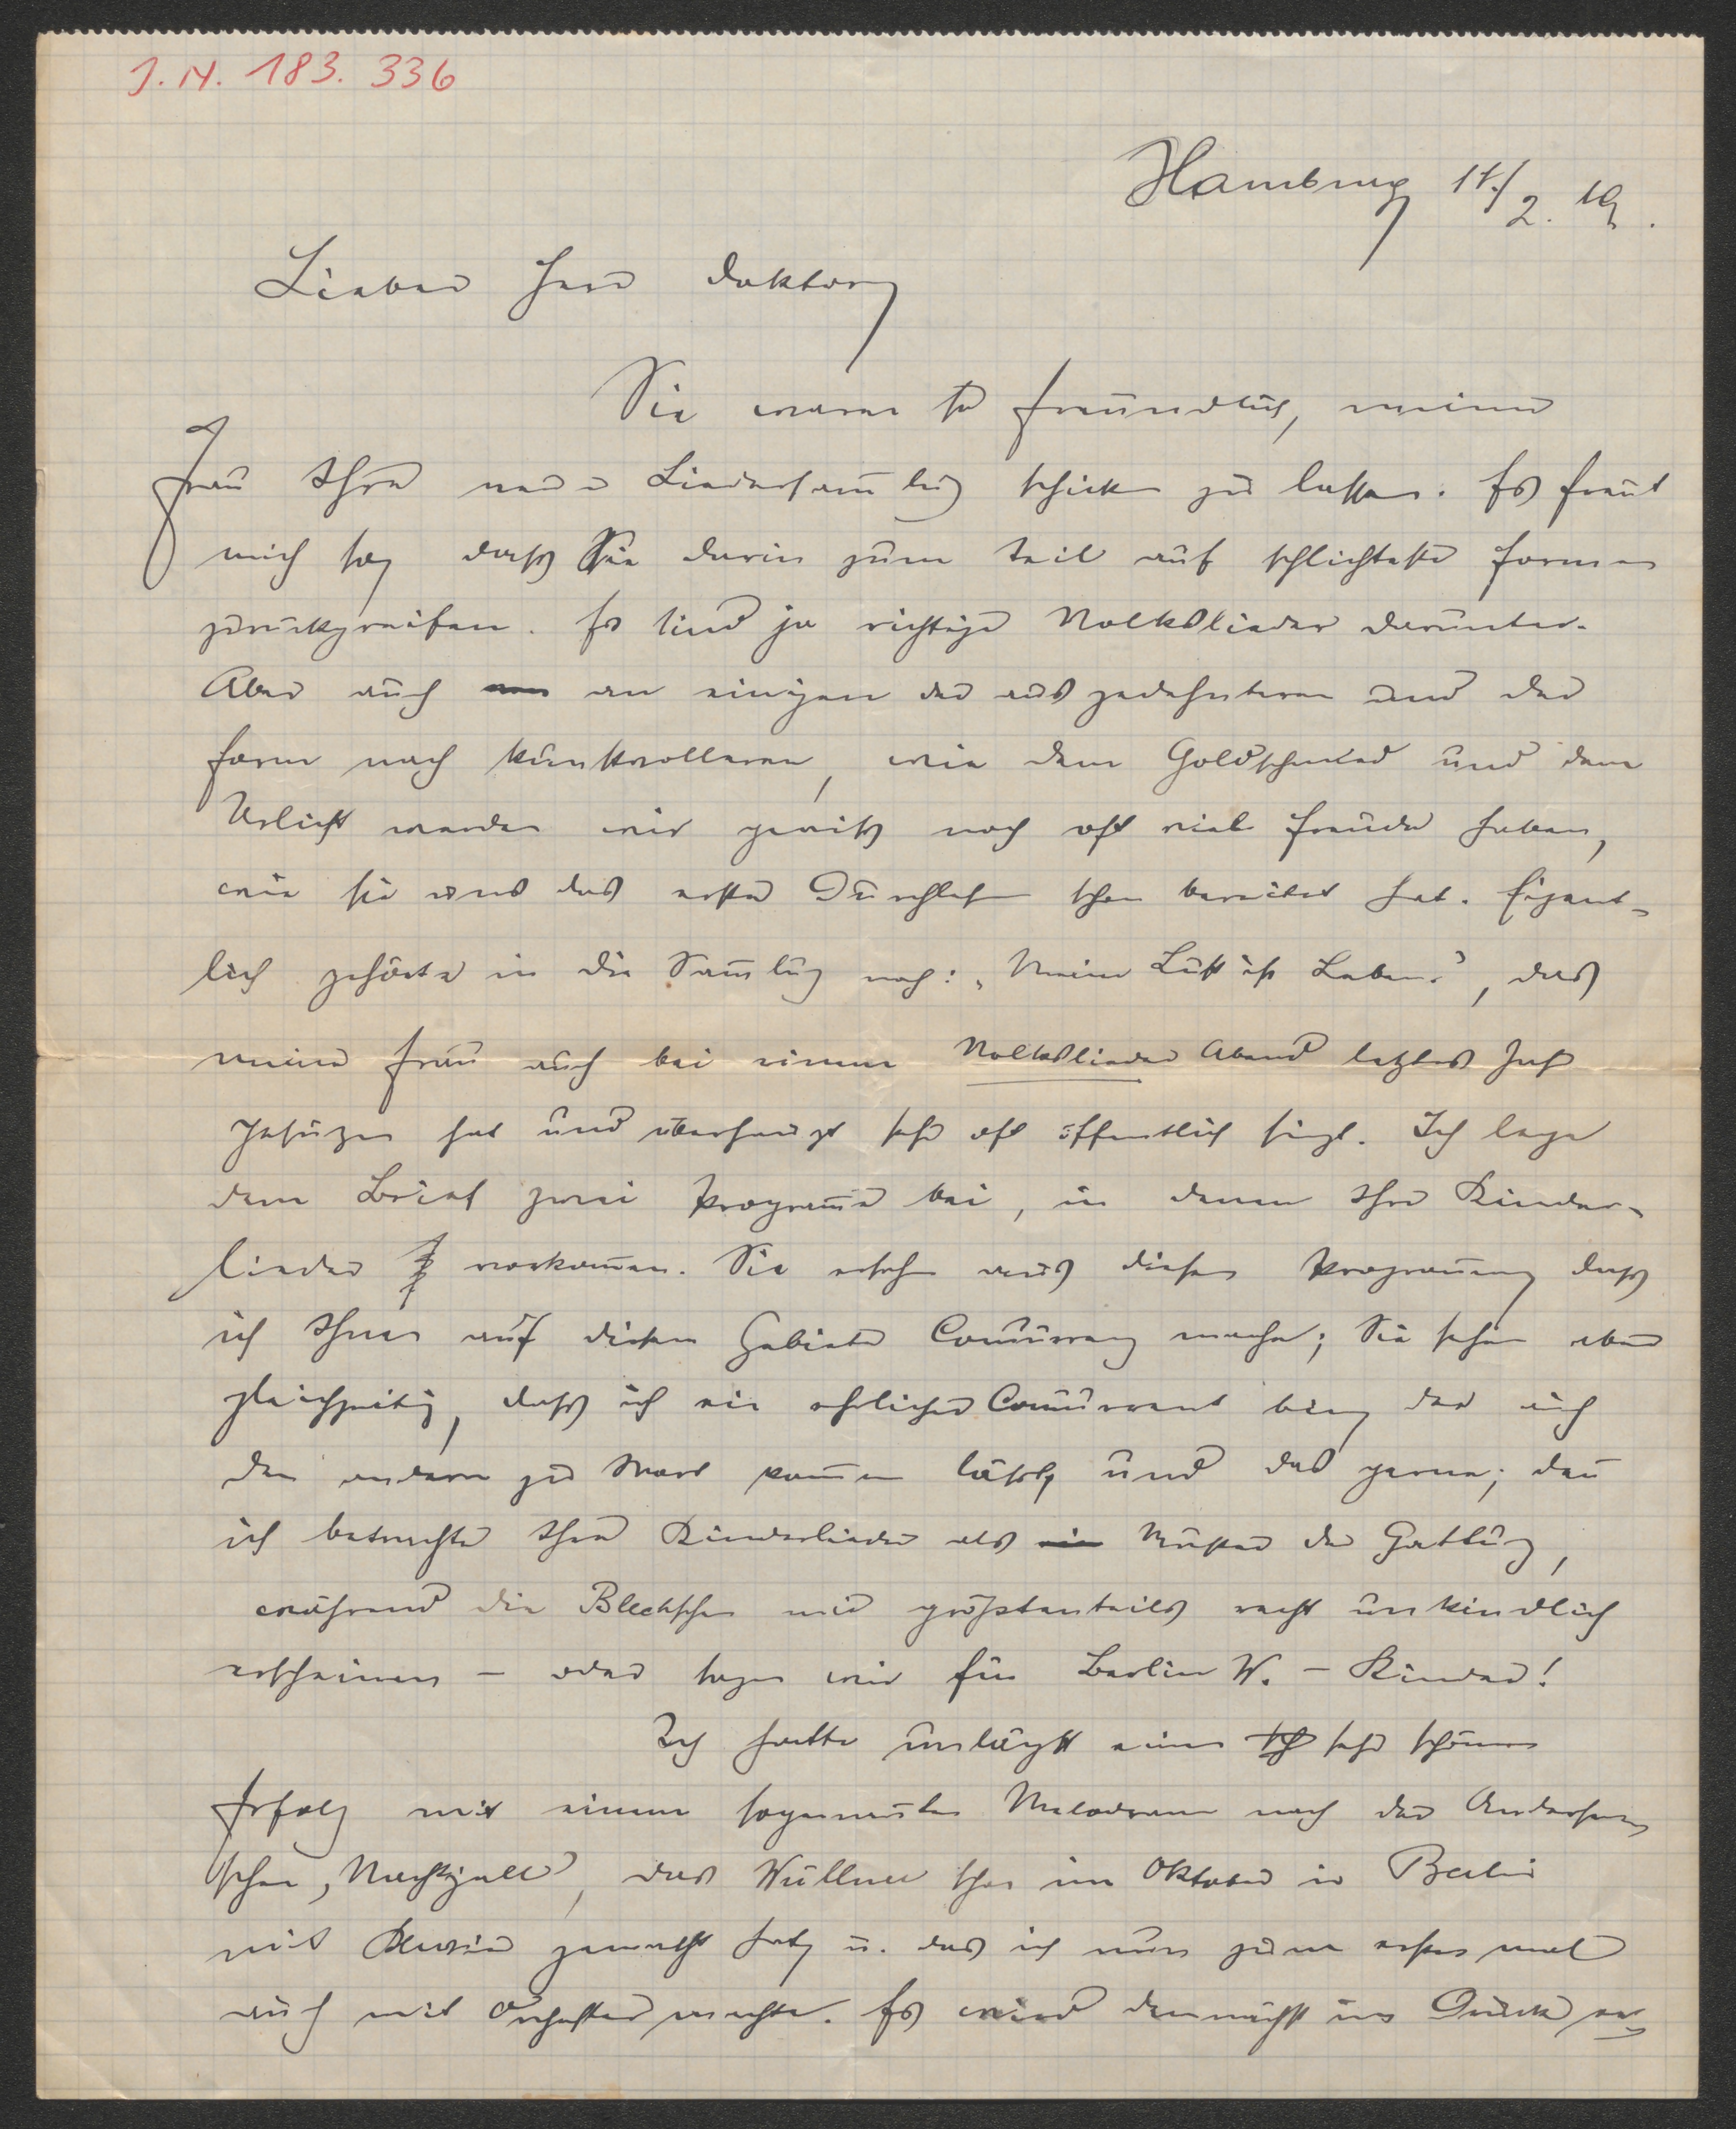 J. N. 183. 336
Hamburg 11./2. 19.
Lieber Herr Doktor,
Sie waren so freundlich, meiner
Frau Ihre neue Liedersam̅lung schicken zu lassen. Es freut
mich sehr, dass Sie darin zum Teil auf schlichteste Formen
zurückgreifen. Es sind ja richtige Volkslieder darunter.
Aber auch an einigen der ausgedehnteren und der
Form nach kunstvolleren, wie dem Goldschmied und dem
Urlicht werden wir gewiss noch oft viel Freude haben,
wie sie uns das erste Durchlesen schon bereitet hat. Eigent-
lich gehörte in die Sam̅lung noch: „Meine Lust ist Leben", das
meine Frau auch bei einem Volkslieder Abend letztes Jahr
gesungen hat und überhaupt sehr oft öffentlich singt. Ich lege
dem Brief zwei Program̅e bei, in denen Ihre Kinder-
lieder vorkom̅en. Sie ersehen aus diesen Program̅en, dass
ich Ihnen auf diesem Gebiete Concurrenz mache; Sie sehen aber
gleichzeitig, dass ich ein ehrlicher Concurrent bin, der auch
den andern zu Wort kom̅en lässt, und das gerne; den̅
ich betrachte Ihre Kinderlieder als Muster der Gattung,
während die Blechschen mir grösstenteils recht unkindlich
erscheinen – oder sagen wir für Berlin W. – Kinder!
Ich hatte unlängst einen sehr schönen
Erfolg mit einem sogenannten Melodram nach der Andersen-
schen „Nachtigall", das Wüllner schon im Oktober in Berlin
mit Klavier gemacht hat, u. das ich nun zum ersten mal
auch mit Orchester machte. Es wird demnächst im Druck er-